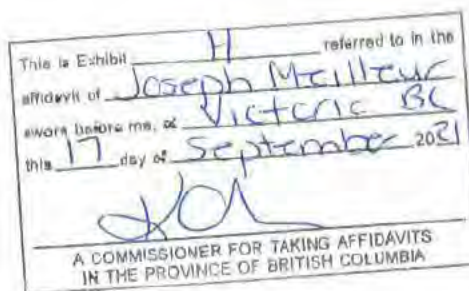 This is Exhibit H referred to in the
affidavit of Joseph Meilleur
sworn before me, at Victoria BC
this 17 day of September 2021
A COMMISSIONER FOR TAKING AFFIDAVITS
IN THE PROVINCE OF BRITISH COLUMBIA